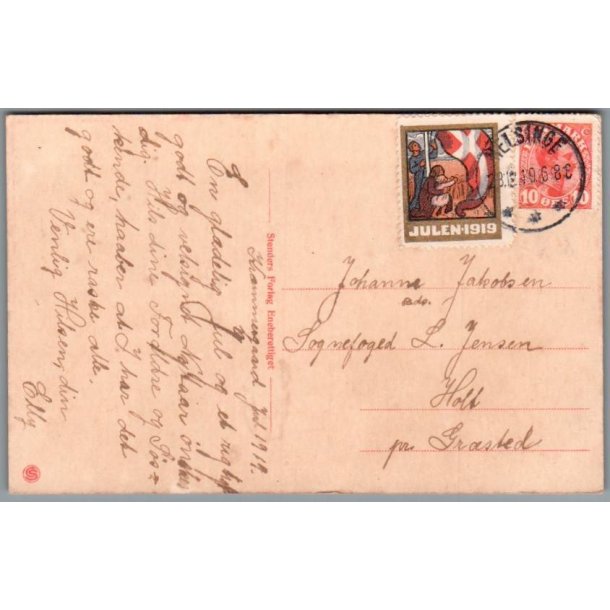 Krammergaard Jul 1919.
En glædelig Jul og et rigtigt
godt og velsignet Nytaar ønskes
dig. Hils dine Forældre og Søs=
kende, haaber at I har det
godt og er raske alle.
Venlig Hilsen, din
Elly
Stenders Forlag Eneberettiget
JULEN·1919
HELSINGE
10 ØRE
Johanne Jakobsen
Sognefoged L. Jensen
Holt
pr. Græsted